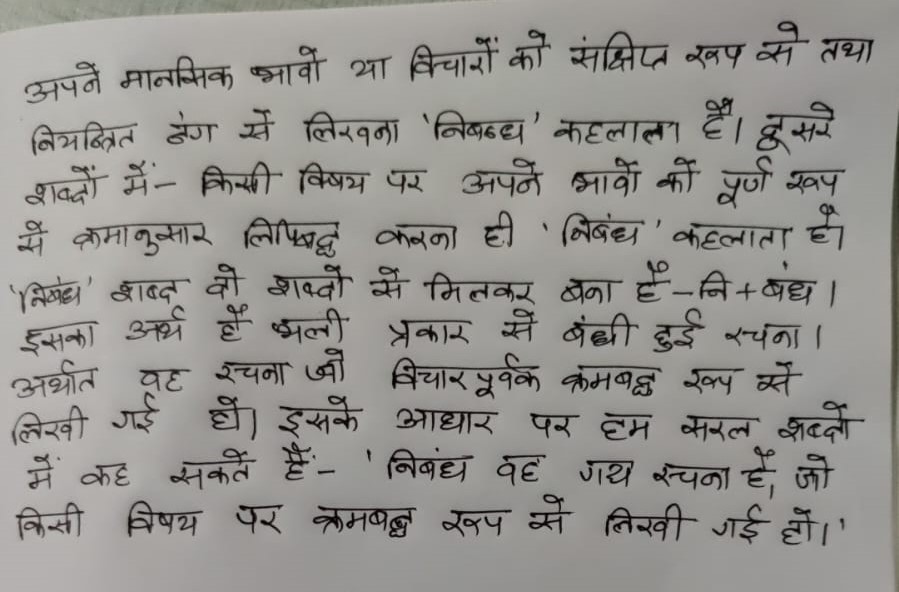 अपने मानसिक भावों या विचारों को संक्षिप्त रूप से तथा
नियन्त्रित ढंग से लिखना 'निबन्ध' कहलाता है। दूसरे
शब्दों में- किसी विषय पर अपने भावों को पूर्ण रूप
से क्रमानुसार लिपिबद्ध करना ही 'निबंध' कहलाता है।
'निबंध' शब्द दो शब्दों से मिलकर बना है-नि+बंध।
इसका अर्थ है भली प्रकार से बंधी हुई रचना।
अर्थात वह रचना जो विचारपूर्वक क्रमबद्ध रूप से
लिखी गई हो। इसके आधार पर हम सरल शब्दों
में कह सकते हैं- 'निबंध वह गद्य रचना है, जो
किसी विषय पर क्रमबद्ध रूप से लिखी गई हो।'